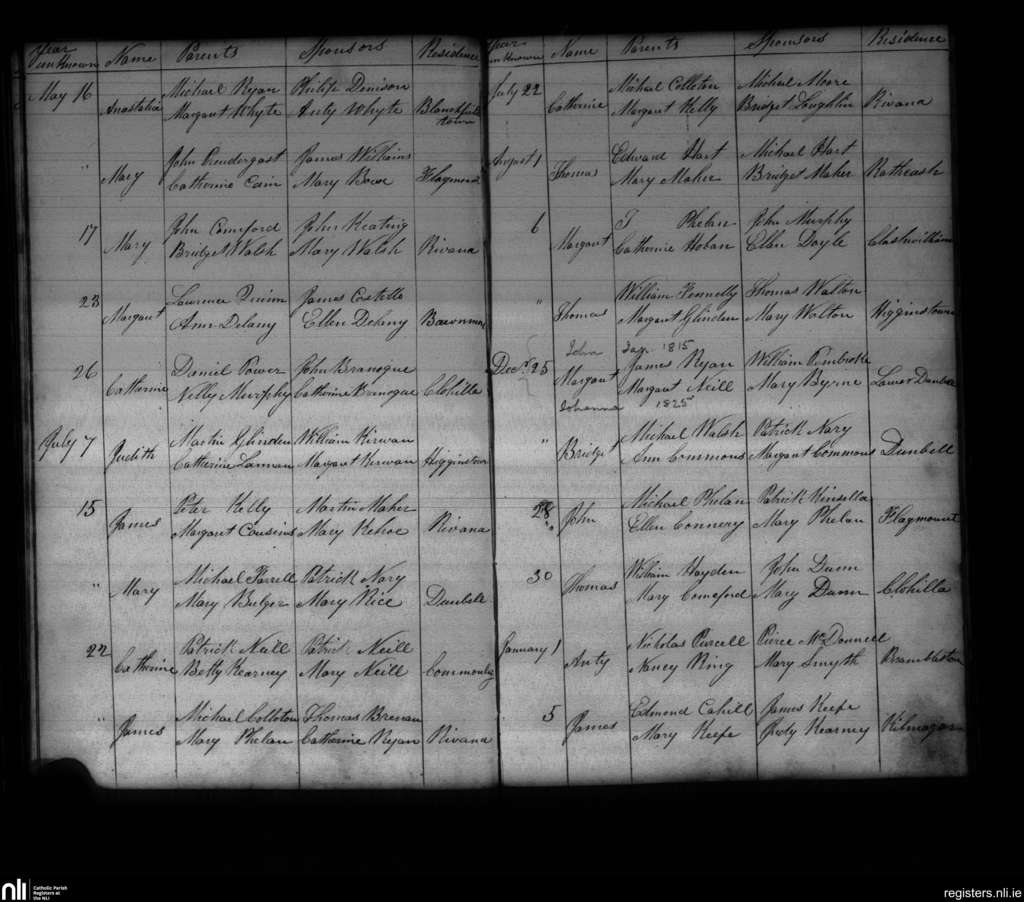 Year unknown Name Parents Sponsors Residence
May 16 Anastatia Michael Ryan Philip Denison
Margaret Whyte Anty Whyte Blanchfields town
" Mary John Prendergast James Williams
Catherine Cain Mary Bowe Flagmount
17 Mary John Comrford John Keating
Bridget Walsh Mary Walsh Rivana
23 Margaret Lawrence Dunn James Costello
Ann Delany Ellen Deheny Bawnmore
26 Catherine Daniel Power John Branogue
Nelly Murphy Catherine Branogue Clohilla
July 7 Judith Martin Glinden William Kirwan
Catherine Lannan Margaret Kirwan Higginstown
15 James Peter Kelly Martin Maher
Margaret Cousins Mary Kehoe Rivana
" Mary Michael Farrell Patrick Nary
Mary Bulger Mary Rice Dunbell
22 Catherine Patrick Neill Patrick Neill
Betty Kearney Mary Neill
" James Michael Colloton Thomas Brenan
Mary Phelan Catherine Ryan Rivana
Year unknown Name Parents Sponsors Residence
July 22 Catherine Michael Colleton Michael Moore
Margaret Kelly Bridget Loughlin Rivana
August 1 Thomas Edward Hart Michael Hart
Mary Maher Bridget Maher Ratheash
6 Margaret T Phelan John Murphy
Catherine Hoban Ellen Doyle Clashwilliam
" Thomas William Fennelly Thomas Walton
Margaret Glinden Mary Walton Higginstown
John 1815
Decr. 25 Margaret James Ryan William Pembroke
Margaret Neill Mary Byrne Lower Dunbell
Johanna 1825
" Bridget Michael Walsh Patrick Nary
Ann Commons Margaret Commons Dunbell
28 " John Michael Phelan Patrick Kinsella
Ellen Connery Mary Phelan Flagmount
30 Thomas William Hayden John Dunn
Mary Comeford Mary Dunn Clohilla
January 1 Anty Nicholas Purcell Pierce McDonnell
Nancy Ring Mary Smyth Bramblestown
5 James Edmond Cahill James Keefe
Mary Keefe Judy Kearney Kilmagar
nli Catholic Parish
Registers at
the NLI
registers.nli.ie